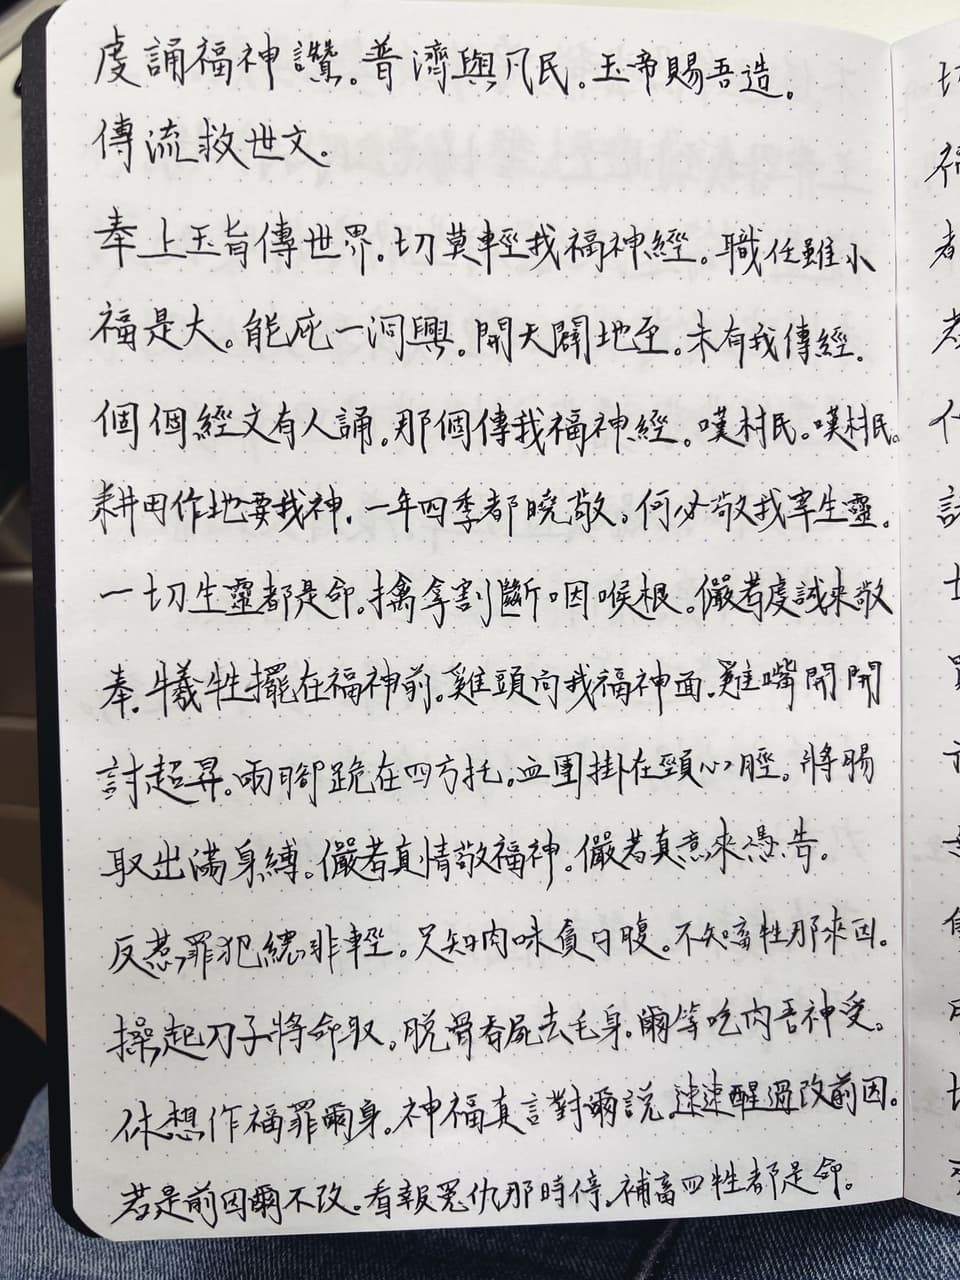 虔誦福神讚。普濟與凡民。玉帝賜吾造。
傳流救世文。
奉上玉旨傳世界。切莫輕我福神經。職任雖小
福是大。能庇一洞興。開天闢地至。未有我傳經。
個個經文有人誦。那個傳我福神經。嘆村民。嘆村民。
耕田作地要我神。一年四季都曉敬。何必敬我宰生靈。
一切生靈都是命。擒拿割斷咽喉根。儼若虔誠來敬
奉。犧牲擺在福神前。雞頭向我福神面。雞嘴開開
討超昇。兩腳跪在四方托。血團掛在頸心脛。將腸
取出滿身縛。儼若真情敬福神。儼若真意來憑告。
反惹罪犯總非輕。只知肉味貪口腹。不知畜牲那來因。
操起刀子將命取。脫骨吞屍去毛身。爾等吃肉吾神受。
休想作福罪爾身。神福真言對爾說。速速醒過改前因。
若是前因爾不改。看報冤仇那時停。補畜四牲都是命。
切
福
者
若